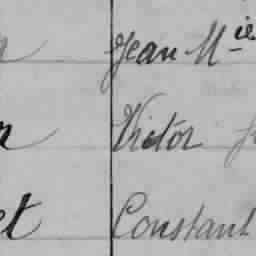 Jean Mie
Victor
et Constant